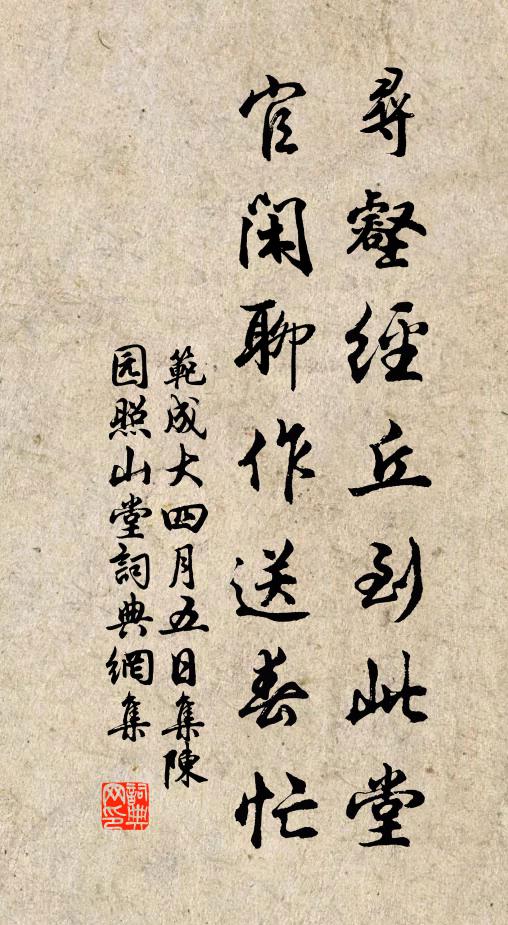 尋壑經丘到此堂
官閑聊作送春忙
範成大四月五日集陳
园照山堂詞典網集
詞典
网印